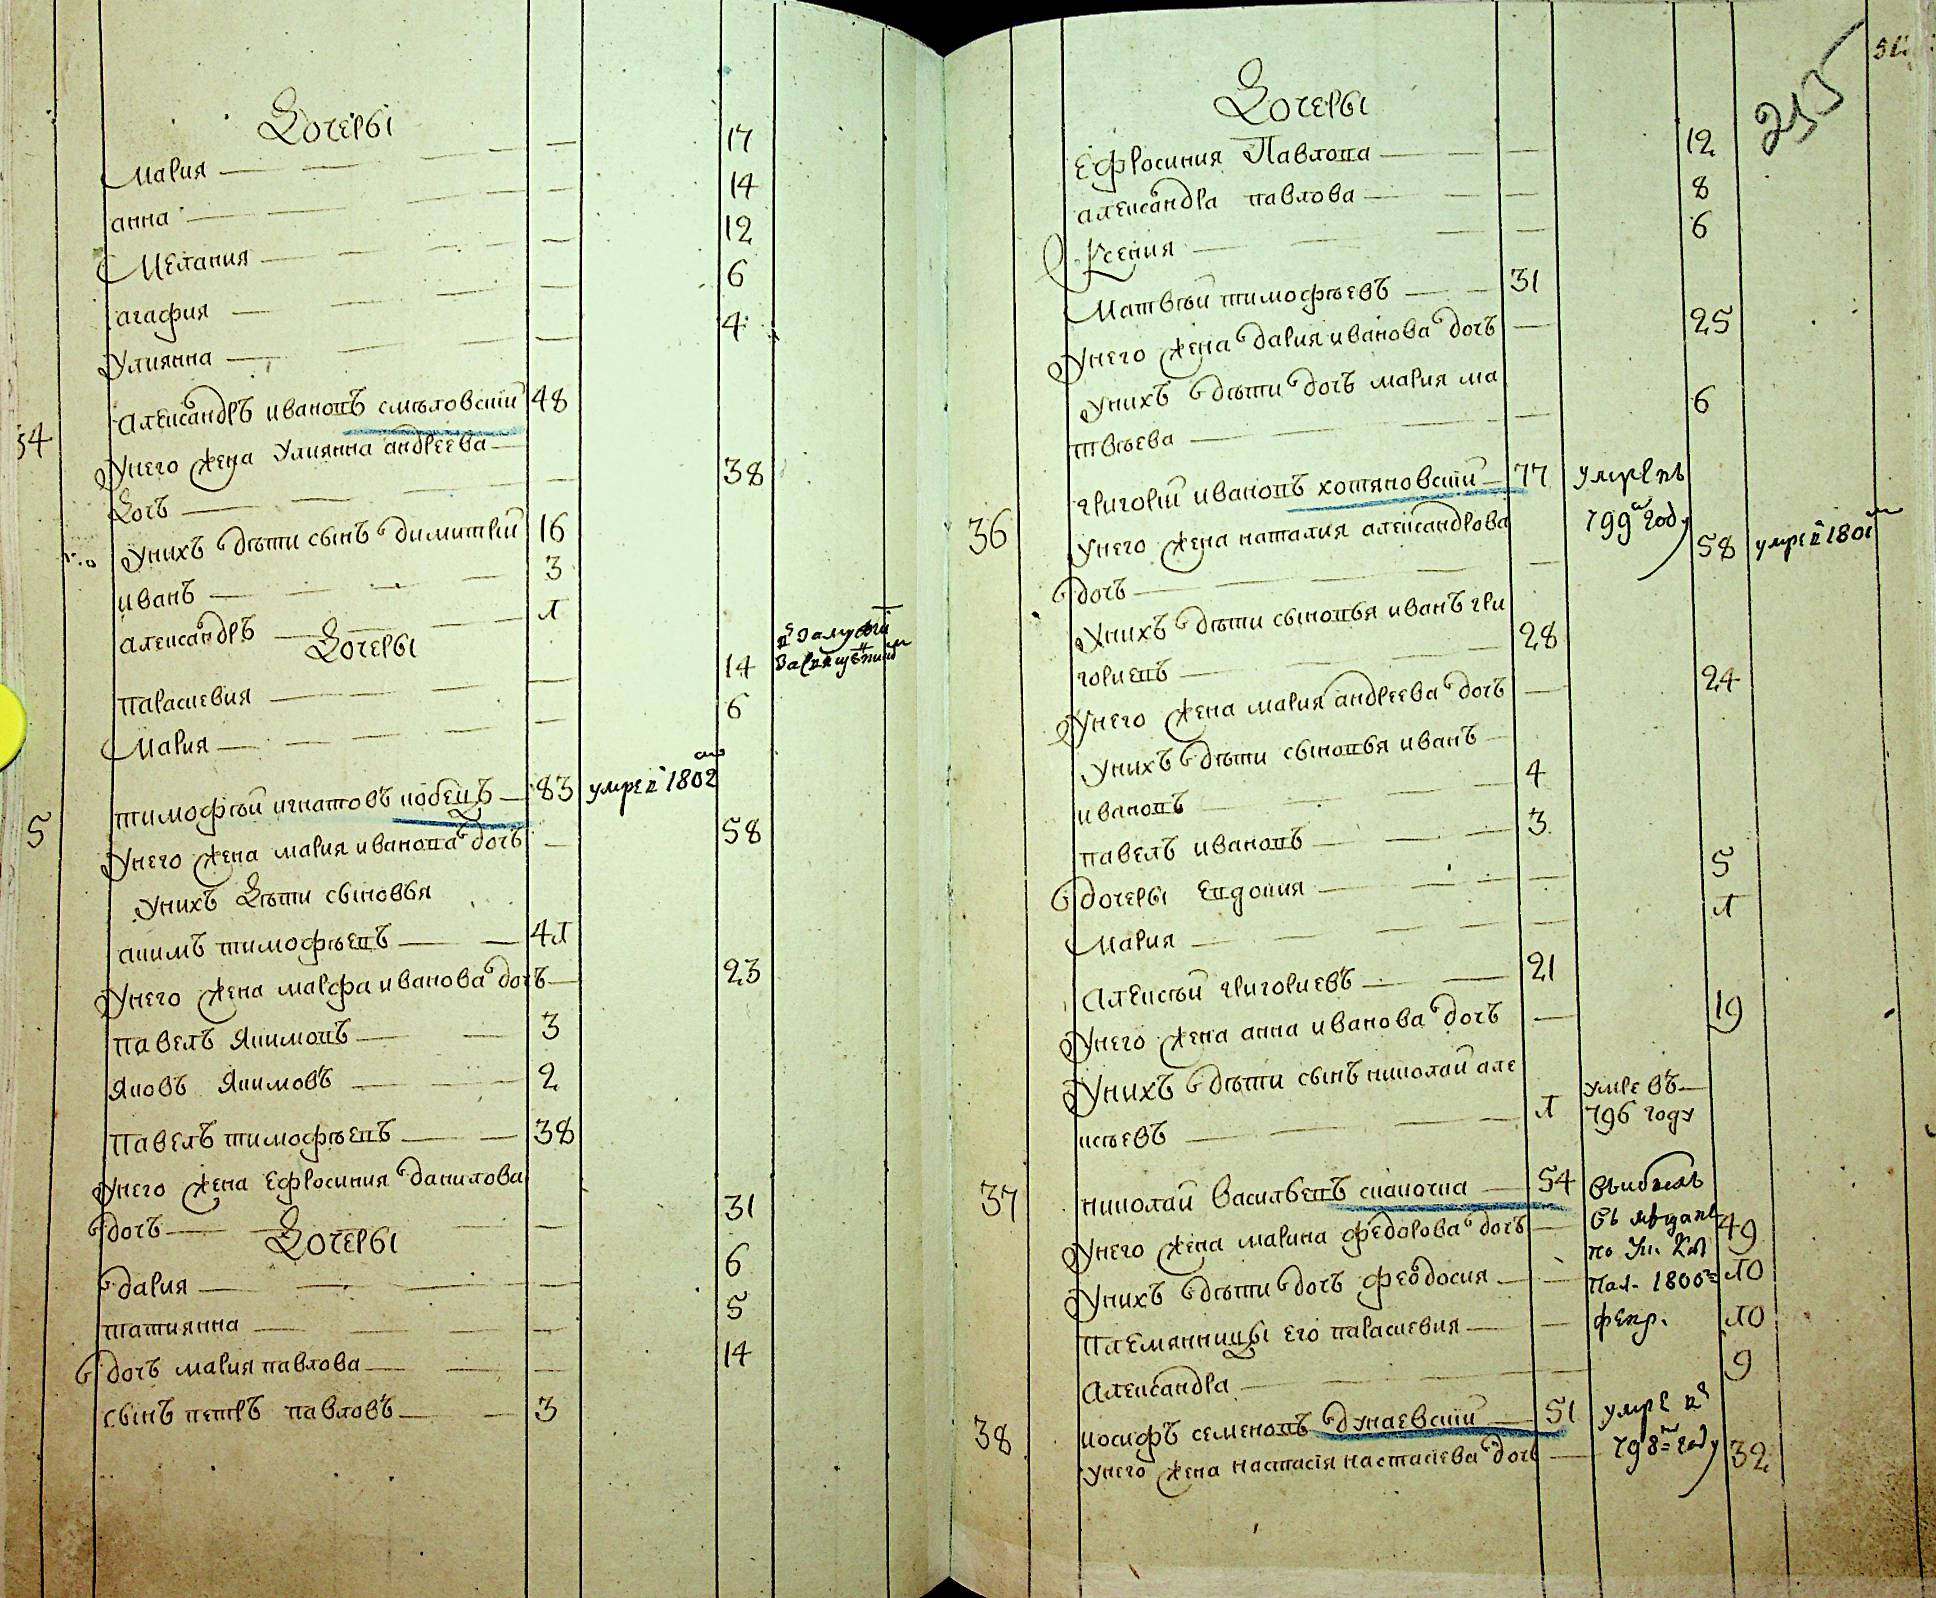 Дочеры
Мария 17
анна 14
Мелания 12
агафия 6
Улиянна 4
34 Александръ ивановъ смѣловскій 48
Унего жена Улиянна андреева
Дочь 38
Унихъ дѣти сынъ димитрій 16
иванъ 3
александръ 1
Дочеры
параскевия 14 замужем
Мария 6
5 тимофѣй игнатовъ кобецъ 83 умре в 1802
Унего жена мария иванова дочъ 58
Унихъ Дѣти сыновья
акимъ тимофѣевъ 41
Унего жена марфа иванова дочъ 23
павелъ Якимовъ 3
Яковъ Якимовъ 2
Павелъ тимофѣевъ 38
Унего жена Ефросиния данилова
дочъ 31
Дочеры
дария 6
татиянна 5
дочъ мария павлова 14
сынъ петръ павловъ 3
235
Дочеры
Ефросиния Павлова 12
александра павлова 8
Ксения 6
Матвѣй тимофѣевъ 31
Унего жена дария иванова дочъ 25
Унихъ дѣти дочъ мария ма
твѣева 6
36 григорій ивановъ хотяновскій 77 умре въ
799м году
Унего жена наталия александрова
дочъ 58 умре в 1801м
Унихъ дѣти сыновья иванъ гри
гориевъ 28
Унего жена мария андреева дочъ 24
Унихъ дѣти сыновья иванъ
ивановъ 4
павелъ ивановъ 3
дочеры Евдокия 5
Мария 1
Алексѣй григориевъ 21
Унего жена анна иванова дочъ 19
Унихъ дѣти сынъ николай але
ксѣевъ 1 умре въ
796 году
37 николай Васильевъ скакочка 54 выбылъ
Унего жена марина федорова дочъ 49
Унихъ дѣти дочъ феодосия 10
по Ук. Каз
Пал. 1800
февр.
Племянницы его параскевия 10
Александра 9
38 иосифъ семеновъ дунаевскій 51 умре в
798м году
Унего жена настасія настасіева дочъ 32